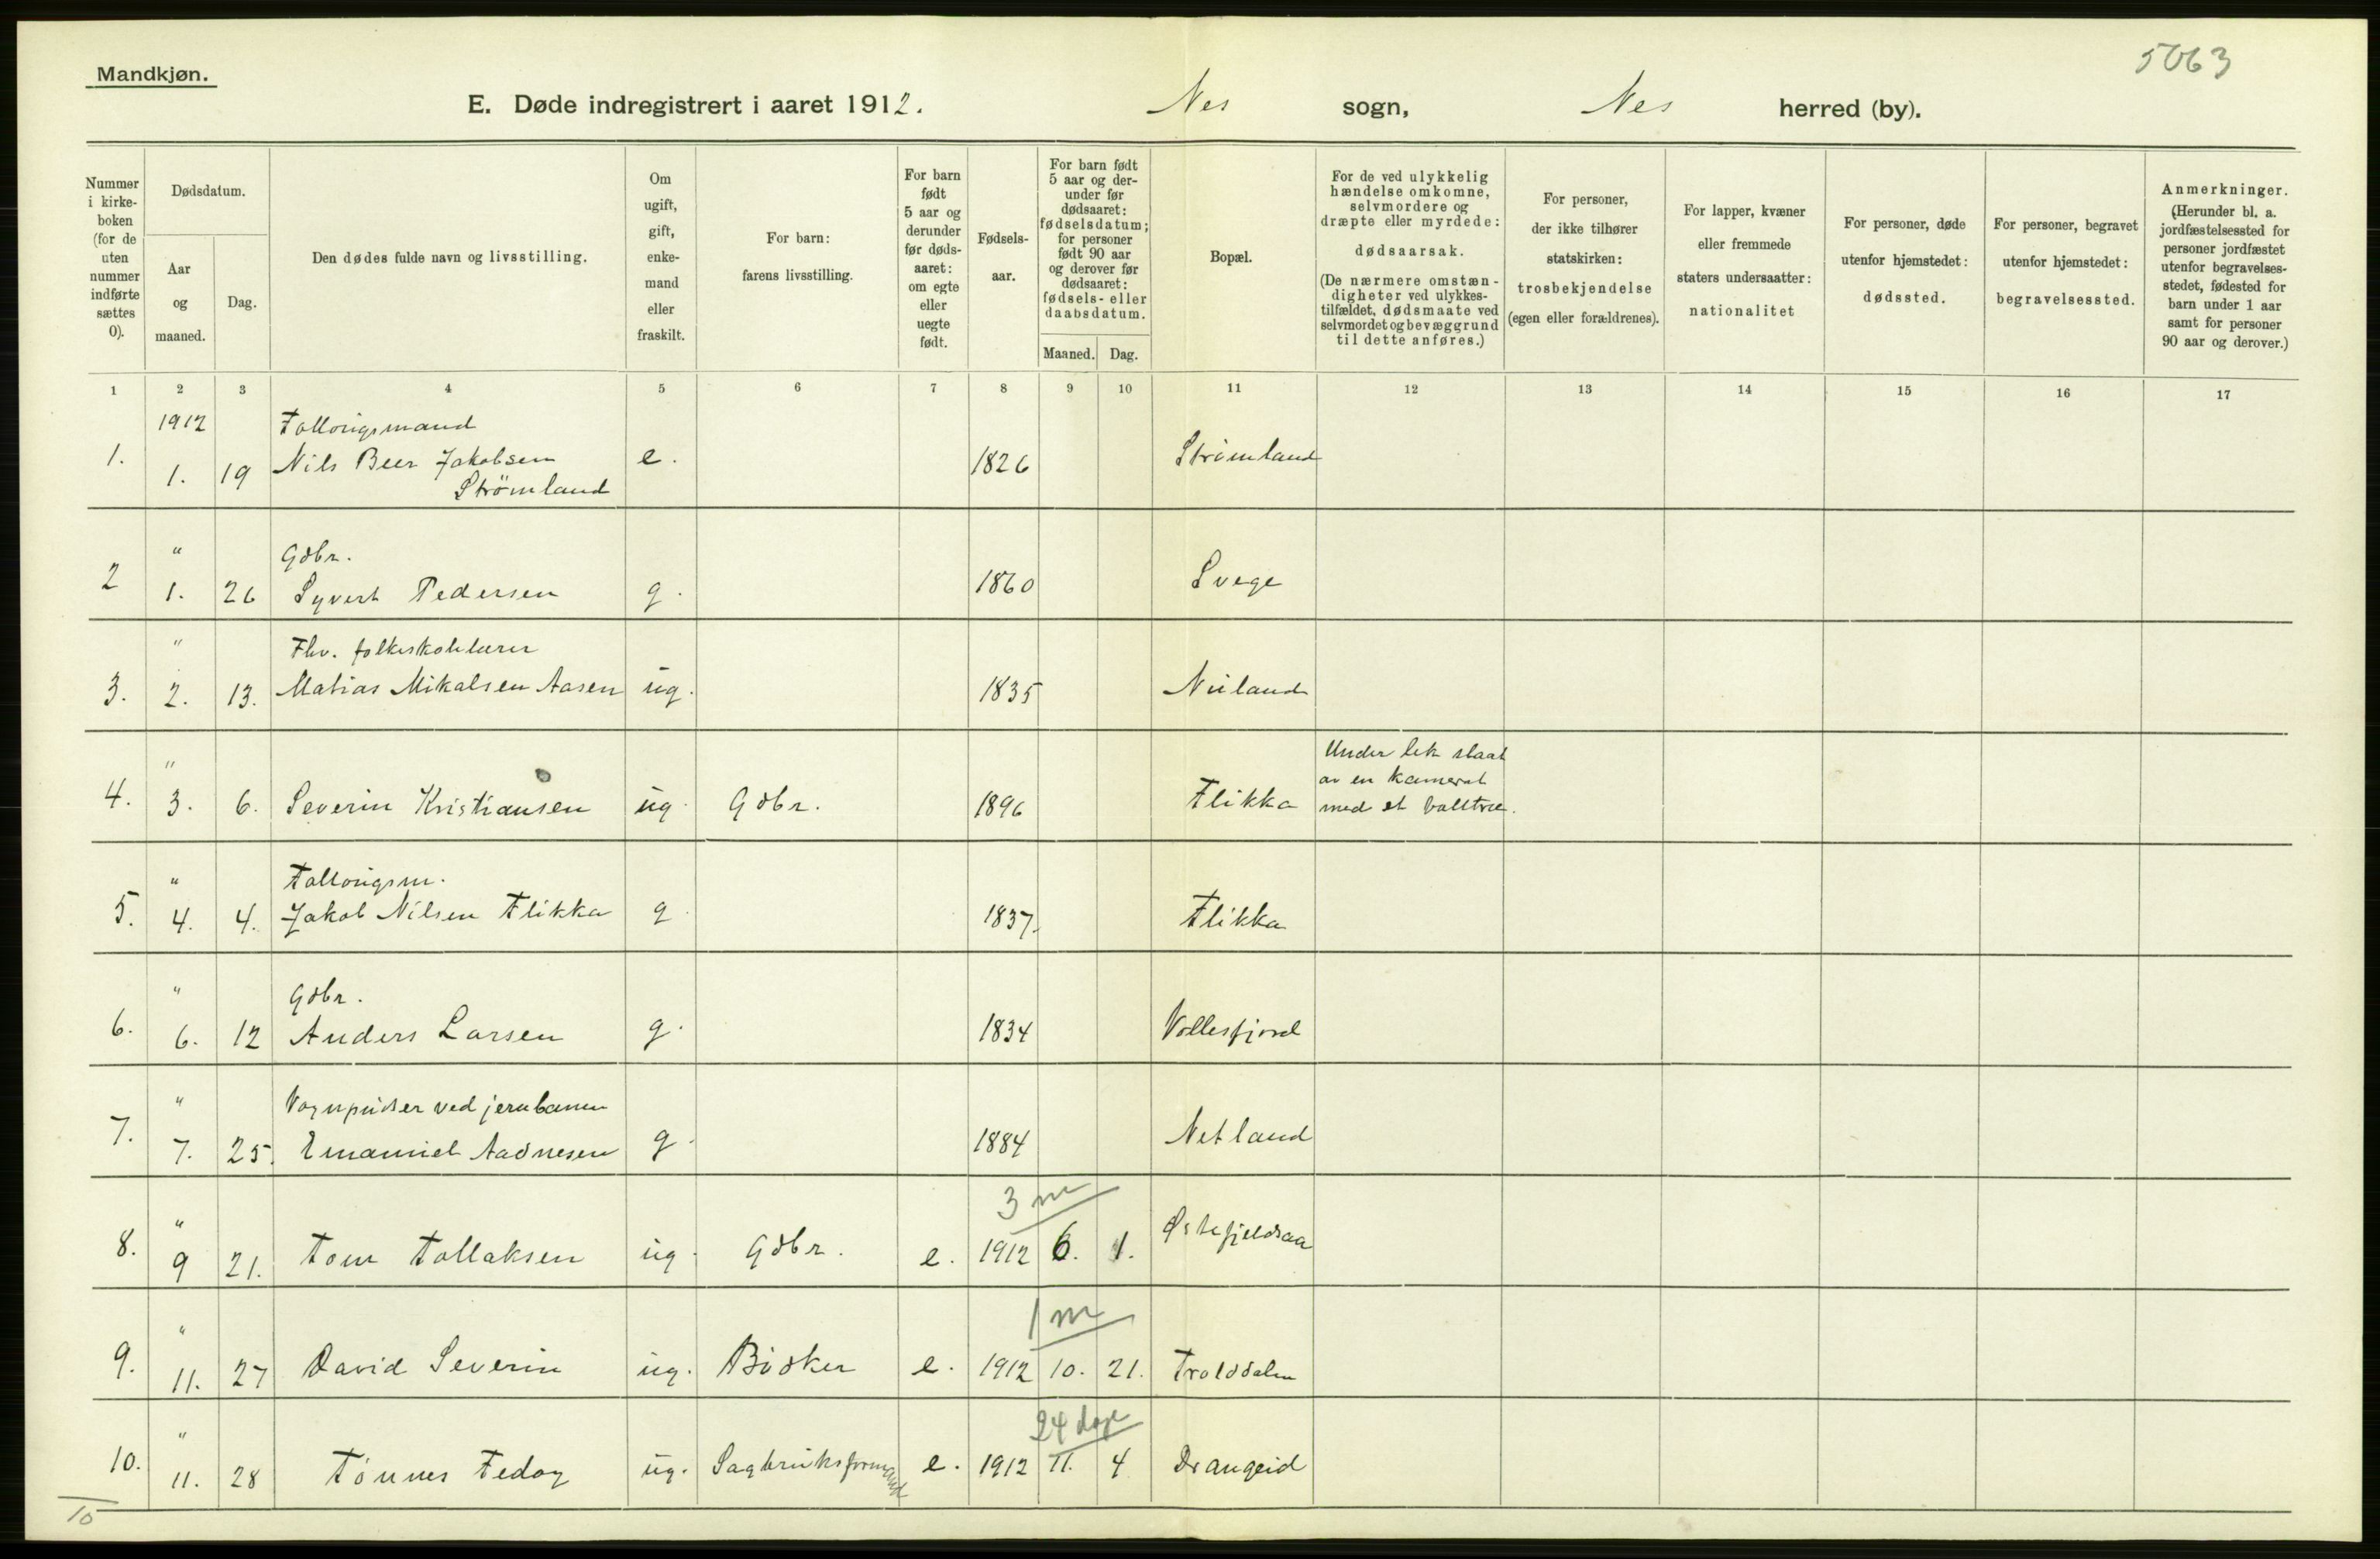 5063
Mandkjøn.
E. Døde indregistrert i aaret 1912. Nes sogn, Nes herred (by).
Nummer i kirke-boken (for de uten nummer indførte sættes 0).
Dødsdatum.
Aar og maaned.
Dag.
Den dødes fulde navn og livsstilling.
Om ugift, gift, enke-mand eller fraskilt.
For barn: farens livsstilling.
For barn født 5 aar og derunder før døds-aaret: om egte eller uegte født.
Fødsels-aar.
For barn født 5 aar og der-under før dødsaaret: fødselsdatum; for personer født 90 aar og derover før dødsaaret: fødsels- eller daabsdatum.
Maaned. Dag.
Bopæl.
For de ved ulykkelig hændelse omkomne, selvmordere og dræpte eller myrdede: dødsaarsak. (De nærmere omstæn-digheter ved ulykkes-tilfældet, dødsmaate ved selvmordet og bevæggrund til dette anføres.)
For personer, der ikke tilhører statskirken: trosbekjendelse (egen eller forældrenes).
For lapper, kvæner eller fremmede staters undersaatter: nationalitet
For personer, døde utenfor hjemstedet: dødssted.
For personer, begravet utenfor hjemstedet: begravelsessted.
Anmerkninger. (Herunder bl. a. jordfæstelsessted for personer jordfæstet utenfor begravelses-stedet, fødested for barn under 1 aar samt for personer 90 aar og derover.)
1 2 3 4 5 6 7 8 9 10 11 12 13 14 15 16 17
1912 Follougsmand
1. 1. 19 Nils Beer Jakobsen e. 1826 Strömland
Strömland
" Gdbr.
2 1. 26 Syvert Pedersen g. 1860 Svege
" Fhv. folkeskolelærer
3. 2. 13. Matias Mikalsen Aasen ug. 1835 Nuland
" Under lek slaat
av en kamerat
4. 3. 6. Severin Kristiansen ug. Gdbr. 1896 Flikka med et balltræ.
" Follougsm.
5. 4. 4. Jakob Nilsen Flikka g. 1837. Flikka
" Gdbr.
6. 6. 12 Anders Larsen g. 1834 Vollesfjord
" Vognpudser ved jernbanen
7. 7. 25. Emanuel Aadnesen g. 1884 Netland
3 m
8. " 9 21. Tom Tollaksen ug. Gdbr. e. 1912 6. 1. Østefjeldsaa
1 m
9. " 11. 27 David Severin ug. Bödker e. 1912 10. 21. Trolddalen
24 dage
10. " 11. 28 Tönnes Fedog ug. Sagbruksformand e. 1912 11. 4 Drangeid
10